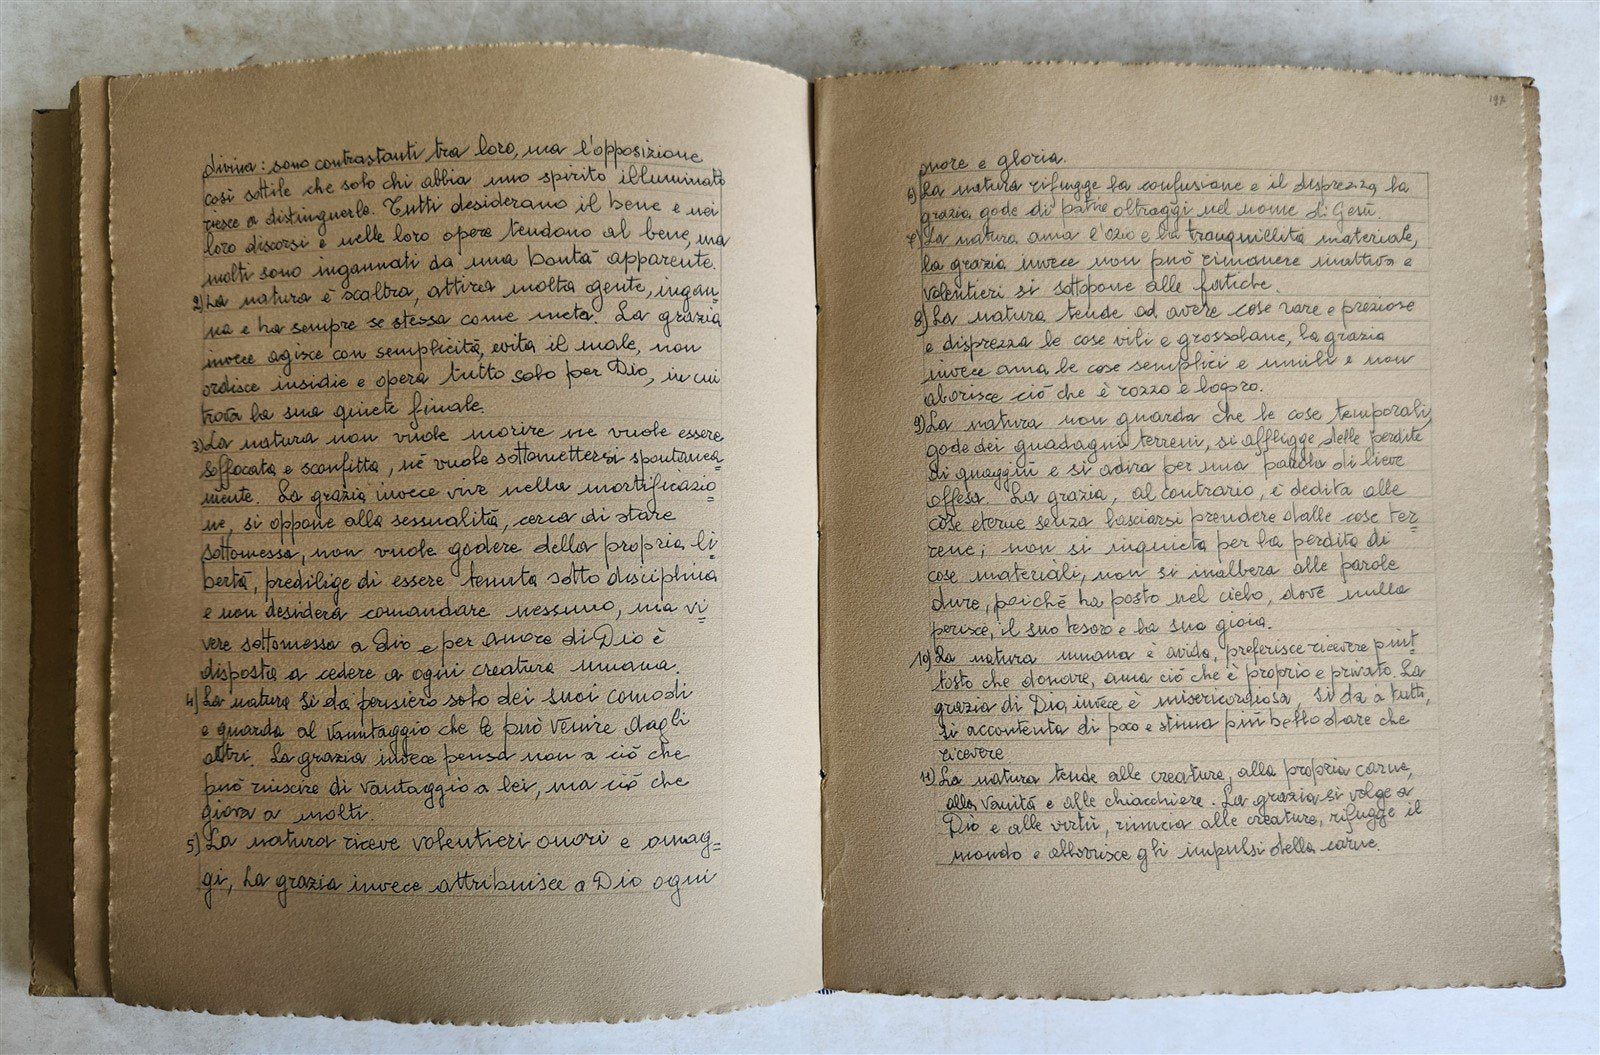 divina: sono contrastanti tra loro, ma l'opposizione
così sottile che solo chi abbia uno spirito illuminato
riesce a distinguerle. Tutti desiderano il bene e nei
loro discorsi e nelle loro opere tendono al bene, ma
molti sono ingannati da una bontà apparente.
2) La natura è scaltra, attira molta gente, ingan=
na e ha sempre se stessa come meta. La grazia
invece agisce con semplicità, evita il male, non
ordisce insidie e opera tutto solo per Dio, in cui
trova la sua quiete finale.
3) La natura non vuole morire ne vuole essere
soffocata e sconfitta, nè vuole sottomettersi spontanea=
mente. La grazia invece vive nella mortificazio=
ne, si oppone alla sessualità, cerca di stare
sottomessa, non vuole godere della propria li=
bertà, predilige di essere tenuta sotto disciplina
e non desidera comandare nessuno, ma vi=
vere sottomessa a Dio e per amore di Dio è
disposta a cedere a ogni creatura umana.
4) La natura si dà pensiero solo dei suoi comodi
e guarda al vantaggio che le può venire dagli
altri. La grazia invece pensa non a ciò che
può riuscire di vantaggio a lei, ma ciò che
giova a molti.
5) La natura riceve volentieri onori e omag=
gi, la grazia invece attribuisce a Dio ogni
197
onore e gloria.
6) La natura rifugge la confusione e il disprezzo la
grazia gode di patire oltraggi nel nome di Gesù.
7) La natura ama l'ozio e la tranquillità materiale,
la grazia invece non può rimanere inattiva e
volentieri si sottopone alle fatiche.
8) La natura tende ad avere cose rare e preziose
e disprezza le cose vili e grossolane, la grazia
invece ama le cose semplici e umili e non
aborisce ciò che è rozzo e logoro.
9) La natura non guarda che le cose temporali,
gode dei guadagni terreni, si affligge delle perdite
di quaggiù e si adira per una parola di lieve
offesa. La grazia, al contrario, è dedita alle
cose eterne senza lasciarsi prendere dalle cose ter=
rene; non si inquieta per la perdita di
cose materiali, non si inalbera alle parole
dure, poichè ha posto nel cielo, dove nulla
perisce, il suo tesoro e la sua gioia.
10) La natura umana è avida, preferisce ricevere piut=
tosto che donare, ama ciò che è proprio e privato. La
grazia di Dio, invece è misericordiosa, si dà a tutti,
si accontenta di poco e stima più bello dare che
ricevere
11) La natura tende alle creature, alla propria carne,
alla vanità e alle chiacchiere. La grazia si volge a
Dio e alle virtù, rinuncia alle creature, rifugge il
mondo e abborrisce gli impulsi della carne.